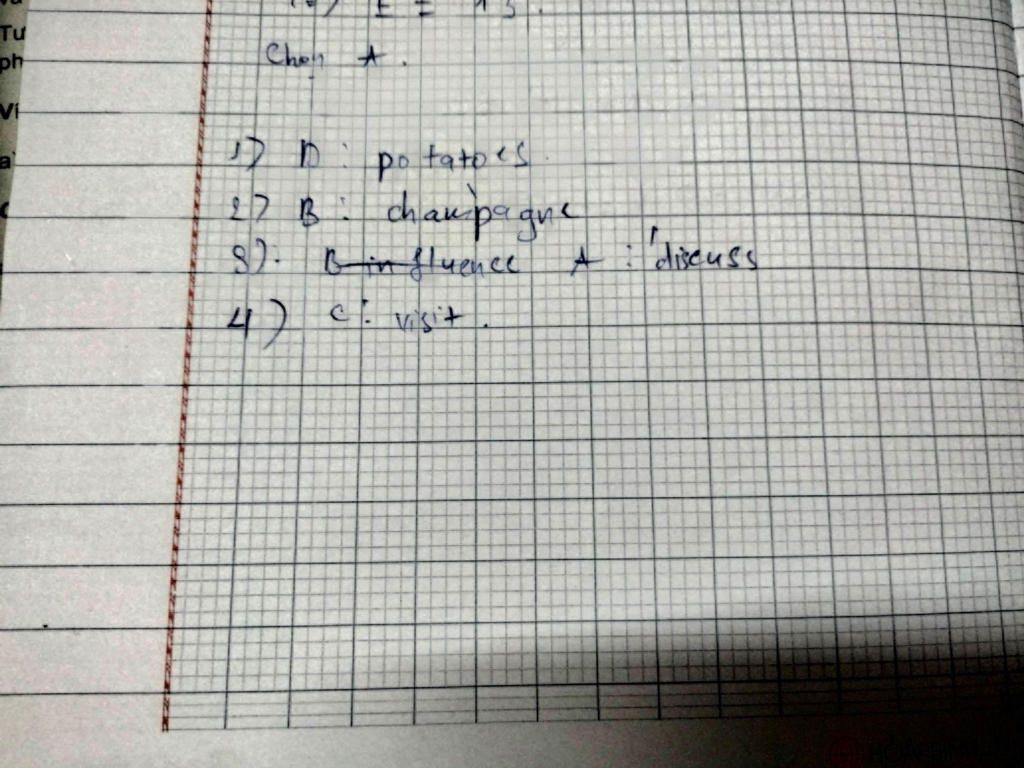 Tu
ph
Vi
Chọn A.
1) D: potatoes.
2) B: champagne
3). B influence A: 'discuss
4) C: visit.